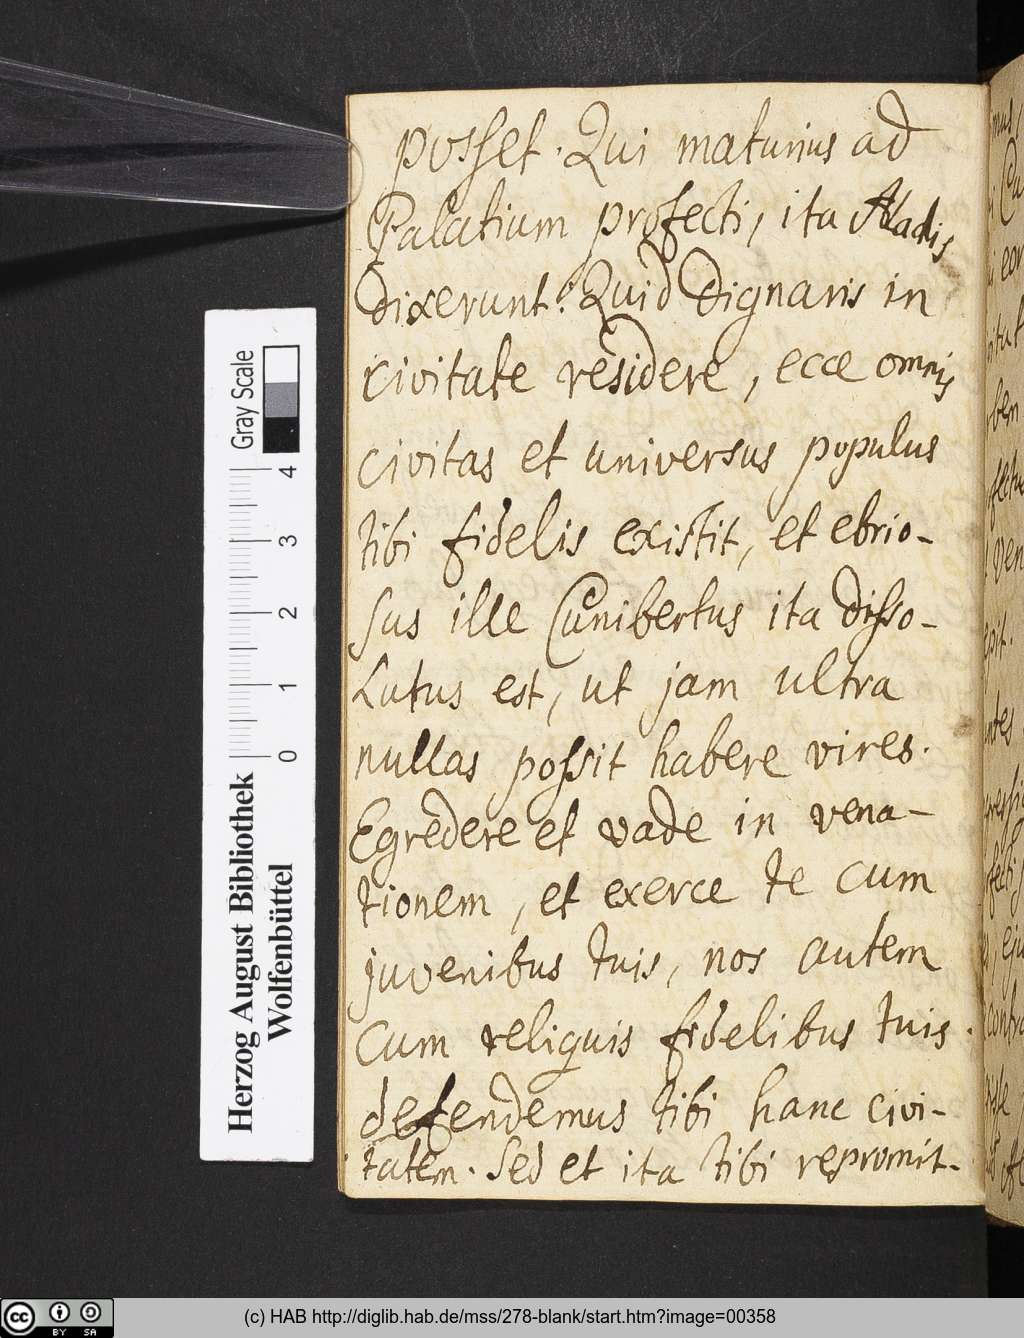 posset. Qui maturius ad
Palatium profecti, ita Aladis
dixerunt: Quid dignaris in
civitate residere, ecce omnis
civitas et universus populus
tibi fidelis existit, et ebrio-
sus ille Cunibertus ita disso-
lutus est, ut jam ultra
nullas possit habere vires.
Egredere et vade in vena-
tionem, et exerce te cum
juvenibus tuis, nos autem
cum reliquis fidelibus tuis
defendemus tibi hanc civi-
tatem. Sed et ita tibi repromit-
Gray Scale
4
3
2
1
0
Herzog August Bibliothek
Wolfenbüttel
cc BY SA
(c) HAB http://diglib.hab.de/mss/278-blank/start.htm?image=00358